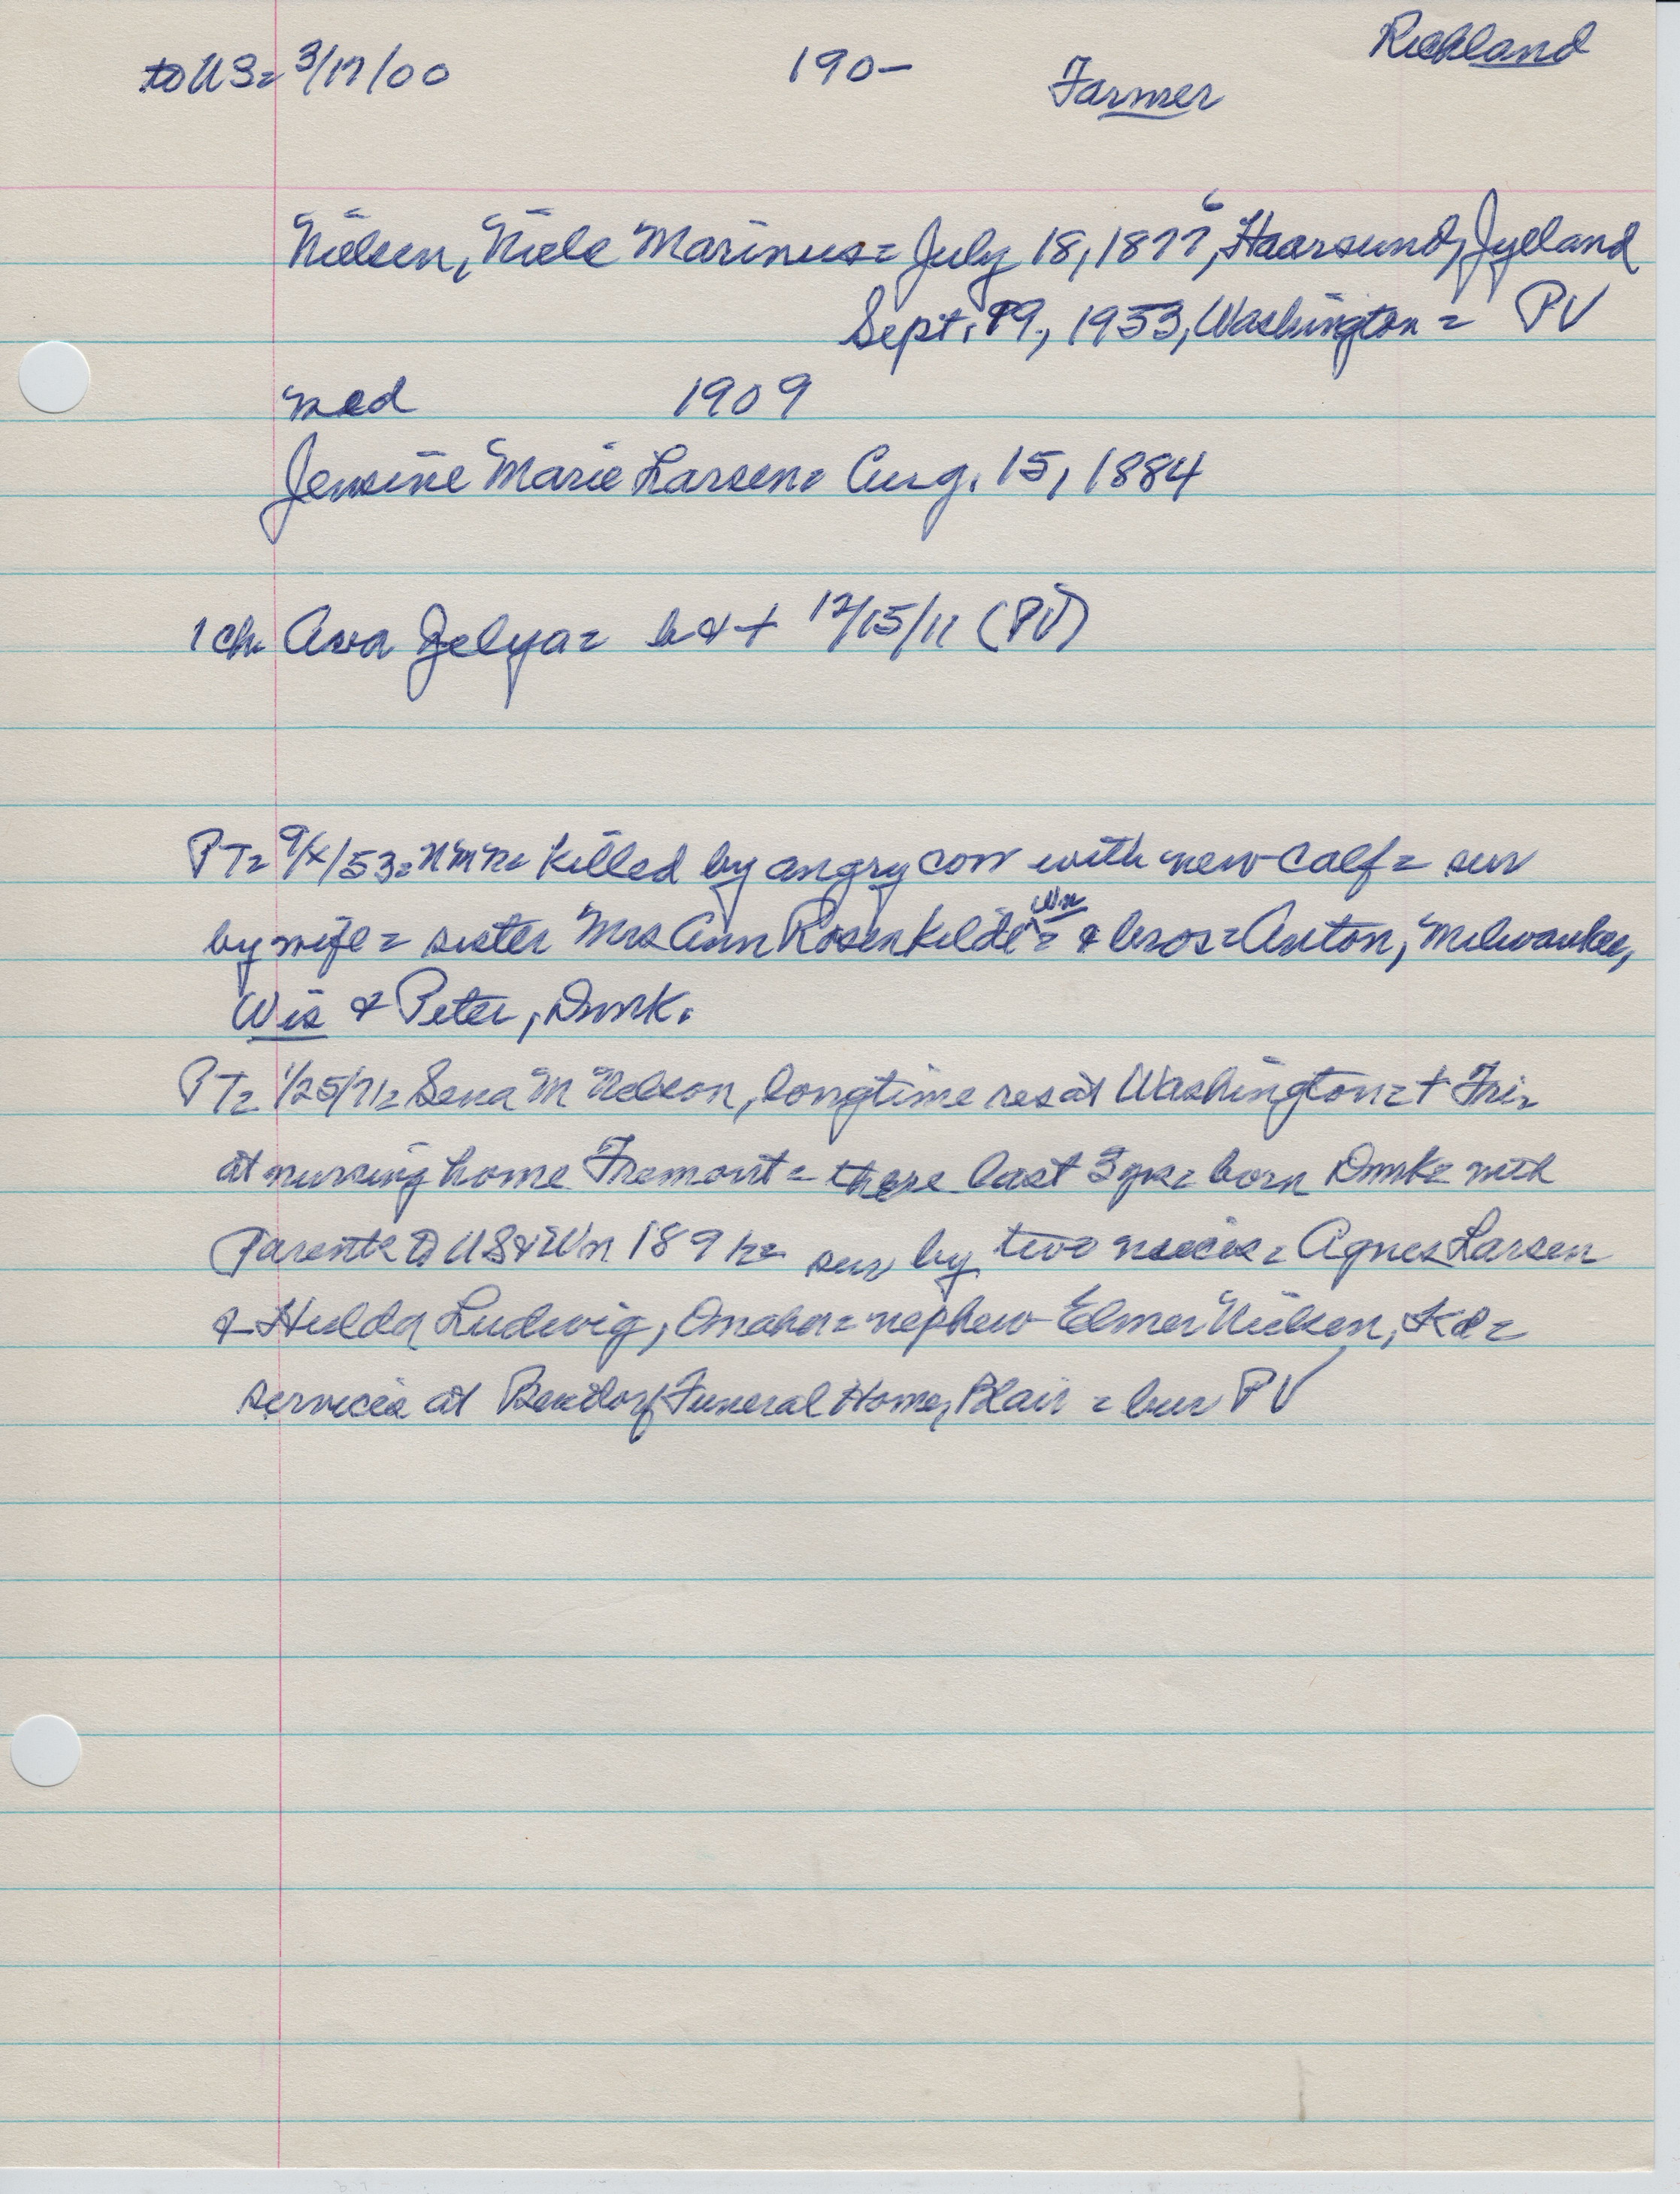 to US= 3/17/00 190- Farmer Richland
Nielsen, Niels Marinus= July 18, 1877, 6 Haarsund, Jylland
Sept. 19, 1953, Washington = PV
med 1909
Jensine Marie Larsen= Aug. 15, 1884
1 ch. Ava Jelya= b & + 12/15/11 (PV)
PT= 9/X/53= NMN= killed by angry cow with new calf= sur
by wife= sister Mrs Ann Rosenkilde Wn = & bros= Anton, Milwaukee,
Wis & Peter, Dnmk.
PT= 1/25/71= Sena M Nelson, longtime res at Washington= + Fri.
at nursing home Fremont= there last 3 yrs= born Dnmk= with
Parents to US & Wn 189 = sur by two nieces= Agnes Larsen
& Hulda Ludwig, Omaha= nephew Elmer Nielsen, Kd=
services at Bendorf Funeral Home, Blair = bur PV